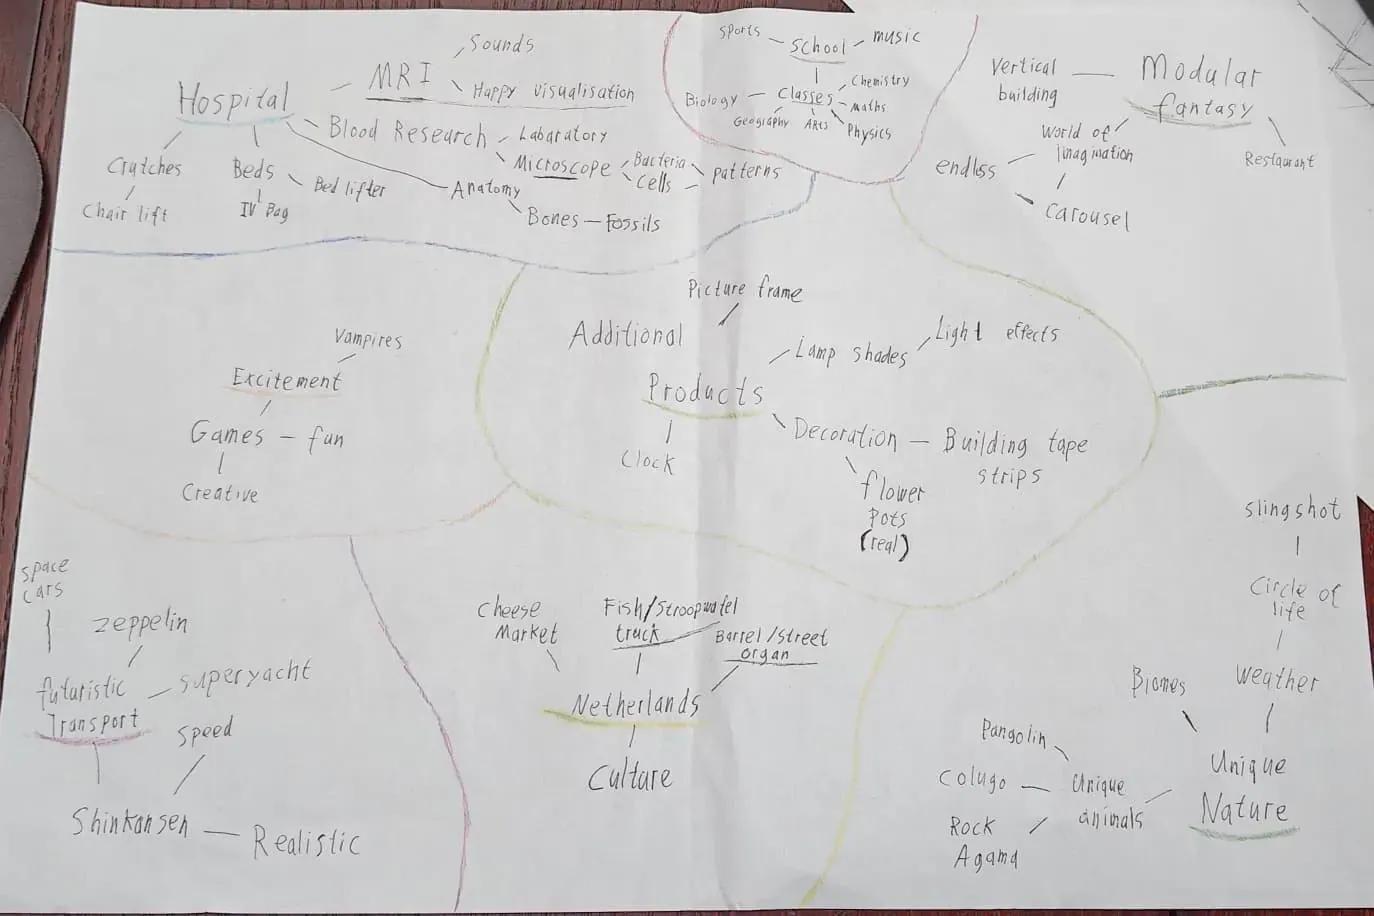 Sounds
MRI
Happy visualisation
Hospital
Blood Research
Labaratory
Microscope
Bacteria
Cells
patterns
Crutches
Chair lift
Beds
IV Bag
Bed lifter
Anatomy
Bones – Fossils
Sports
School
music
Biology
Classes
Chemistry
maths
Geography
ARts
Physics
Vertical
building
Modular
fantasy
World of
Imagination
Restaurant
endless
Carousel
Vampires
Excitement
Games – fun
Creative
Picture frame
Additional
Products
Lamp shades
Light effects
Decoration – Building tape
strips
Clock
flower
Pots
(real)
Space
Cars
Zeppelin
futuristic
Transport
superyacht
Speed
Shinkansen – Realistic
Cheese
Market
Fish/Stroopwafel
truck
Barrel/Street
organ
Netherlands
Culture
slingshot
Circle of
life
Weather
Biomes
Unique
Nature
Pangolin
Colugo
Rock
Agama
Unique
animals